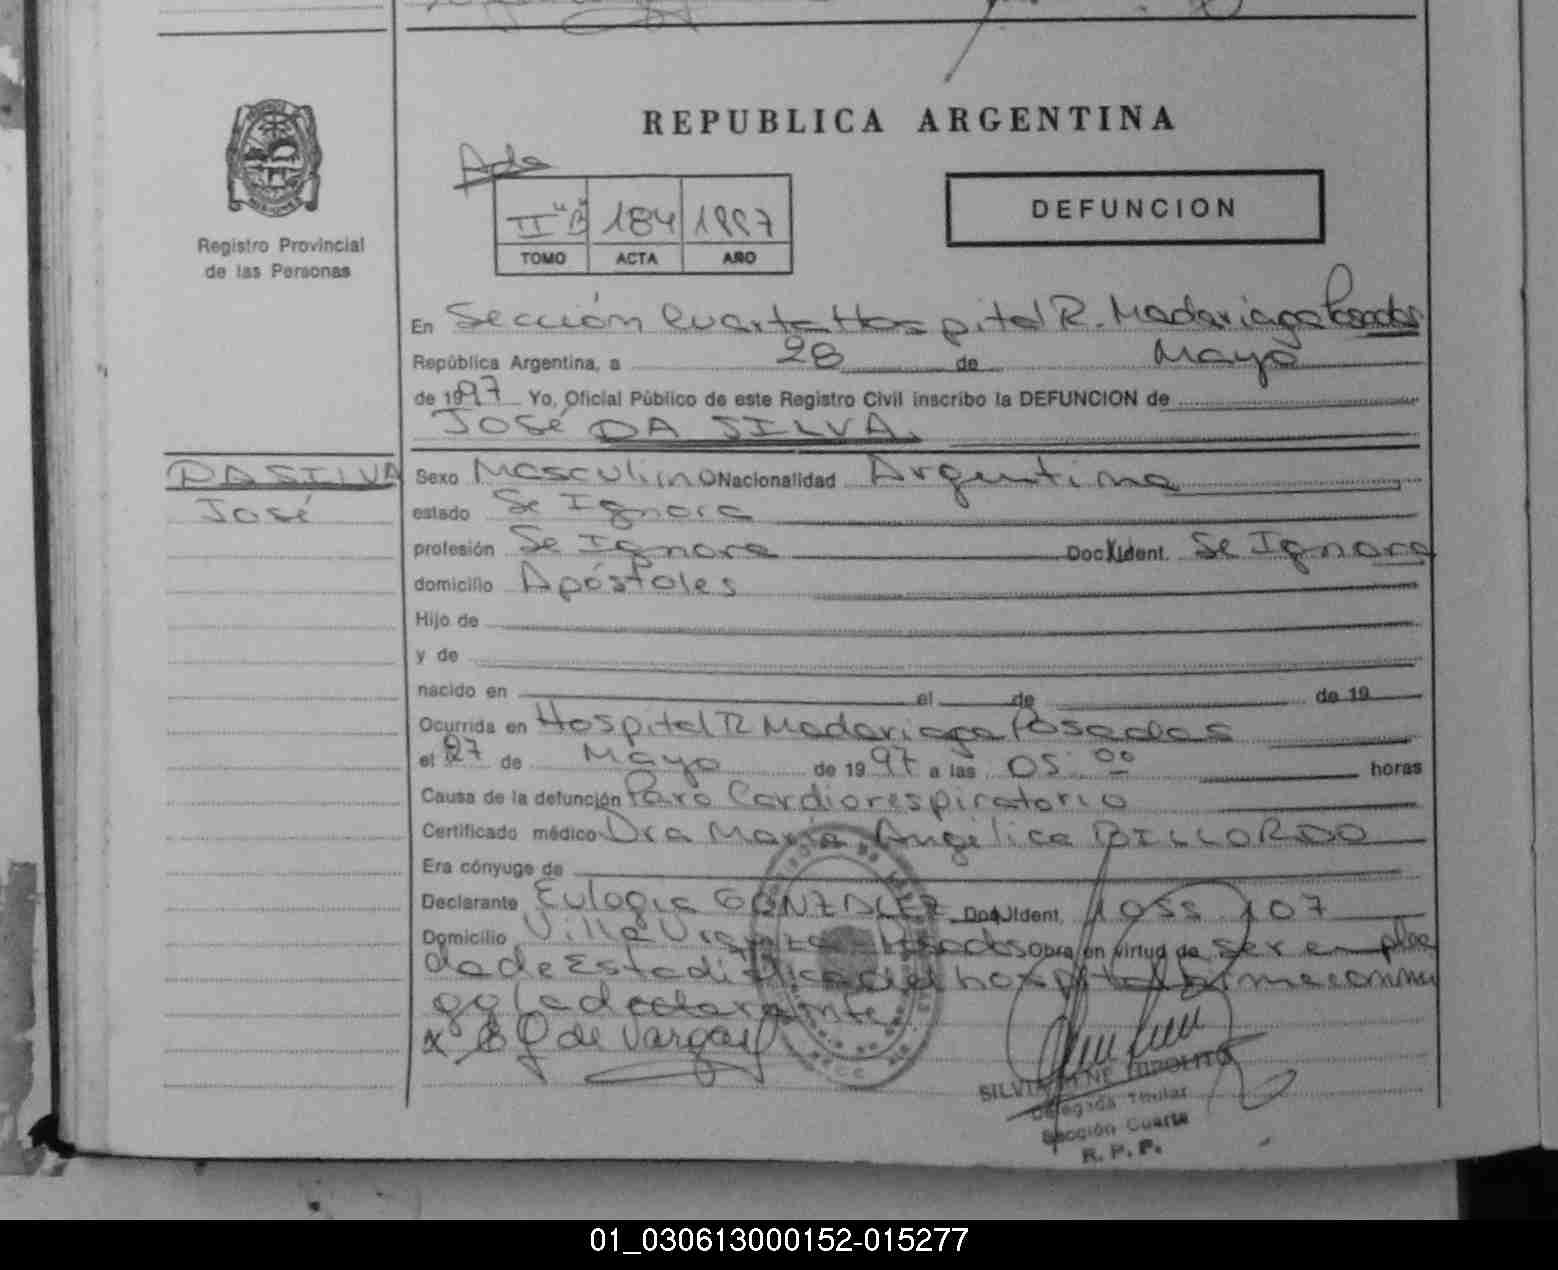 REPUBLICA ARGENTINA
Registro Provincial
de las Personas
Ada
II "B" 184 1997
TOMO ACTA AÑO
DEFUNCION
En Sección Cuarta Hospital R. Madariaga Posadas
República Argentina, a 28 de Mayo
de 1997 Yo, Oficial Público de este Registro Civil inscribo la DEFUNCION de
JOSÉ DA SILVA.
DA SILVA
José
Sexo Masculino Nacionalidad Argentina
estado Se Ignora
profesión Se Ignora Doc. Ident. Se Ignora
domicilio Apóstoles
Hijo de
y de
nacido en el de de 19
Ocurrida en Hospital R Madariaga Posadas
el 27 de Mayo de 1997 a las 05:00 horas
Causa de la defunción Paro Cardiorespiratorio
Certificado médico Dra María Angélica BILLORDO
Era cónyuge de
Declarante Eulogia GONZALEZ Doc. Ident. 1055 107
Domicilio Villa Urquiza Posadas Obra en virtud de ser emplea
da de Estadística del hospital
la declarante
x E G de Vargas
SILVIA IRENE HIPOLITO
Delegada Titular
Sección Cuarta
R. P. P.
01_030613000152-015277